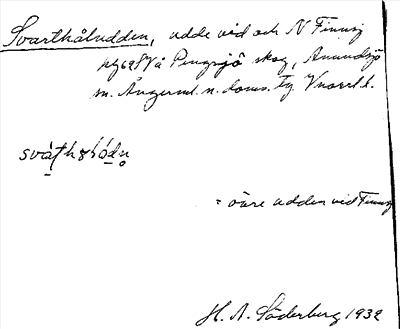 Svarthåludden, udde vid och N Finnsj
på Pengsjö skog, Anundsjö
m. Ångerml. n. doms. tg Vnorrl l.
= övre udden vid Finnsj
H. A. Söderberg 1932